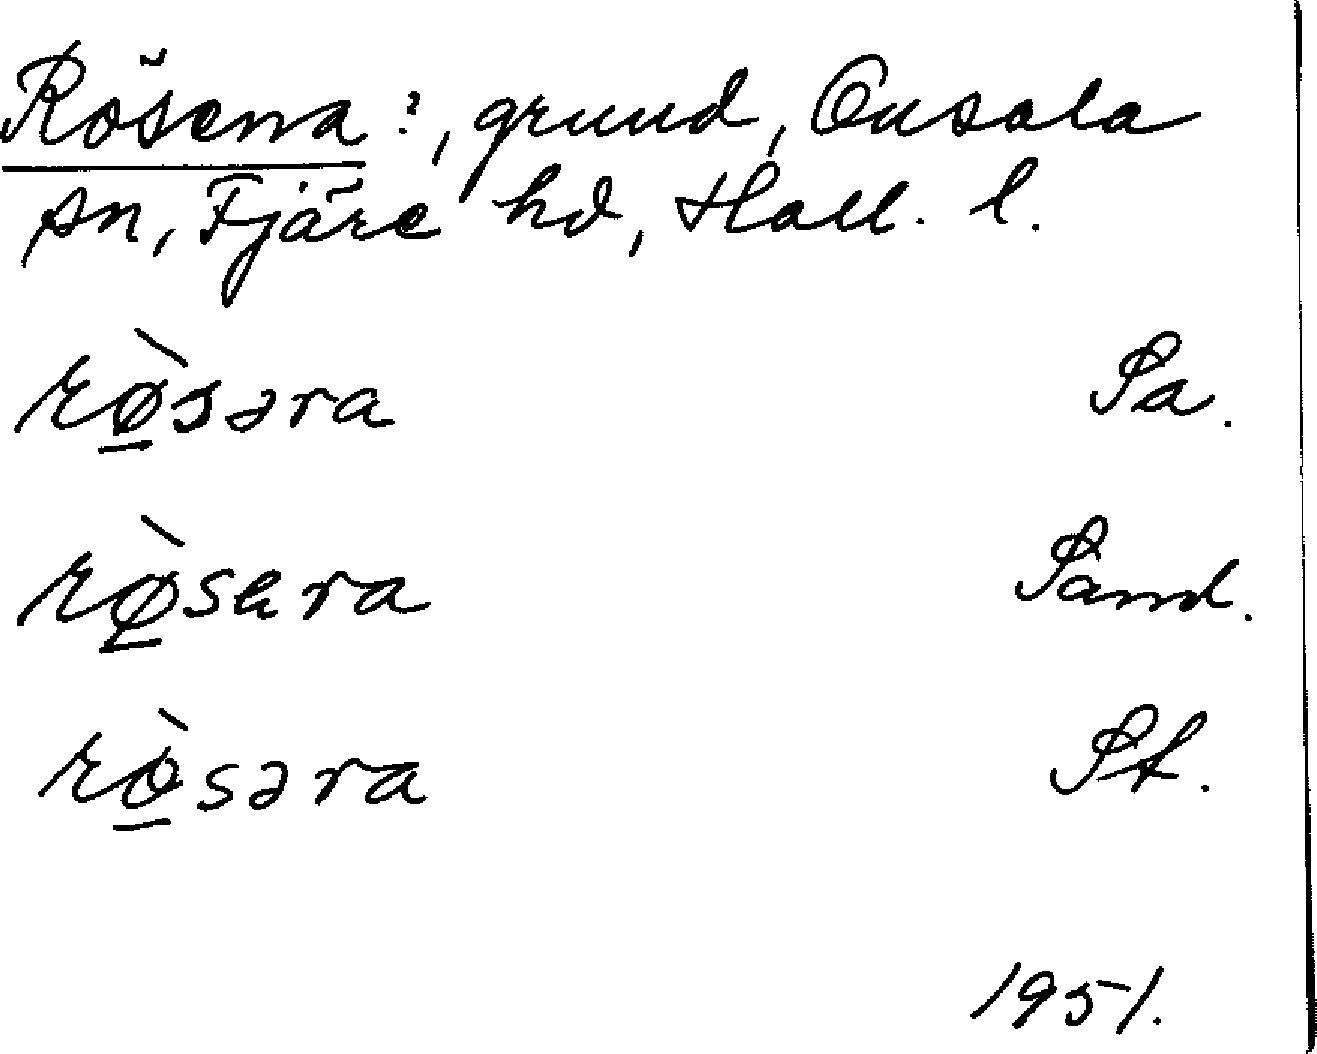 Rösena?, grund, Onsala
sn, Fjäre hd, Hall. l.
rø̀səra Pa.
rø̀sera Pand.
rø̀səra Pt.
1951.